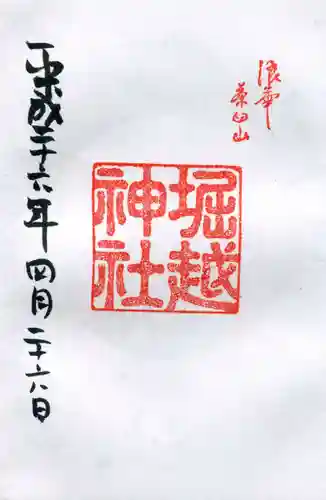 浪華
茶臼山
堀越
神社
平成二十六年四月二十六日